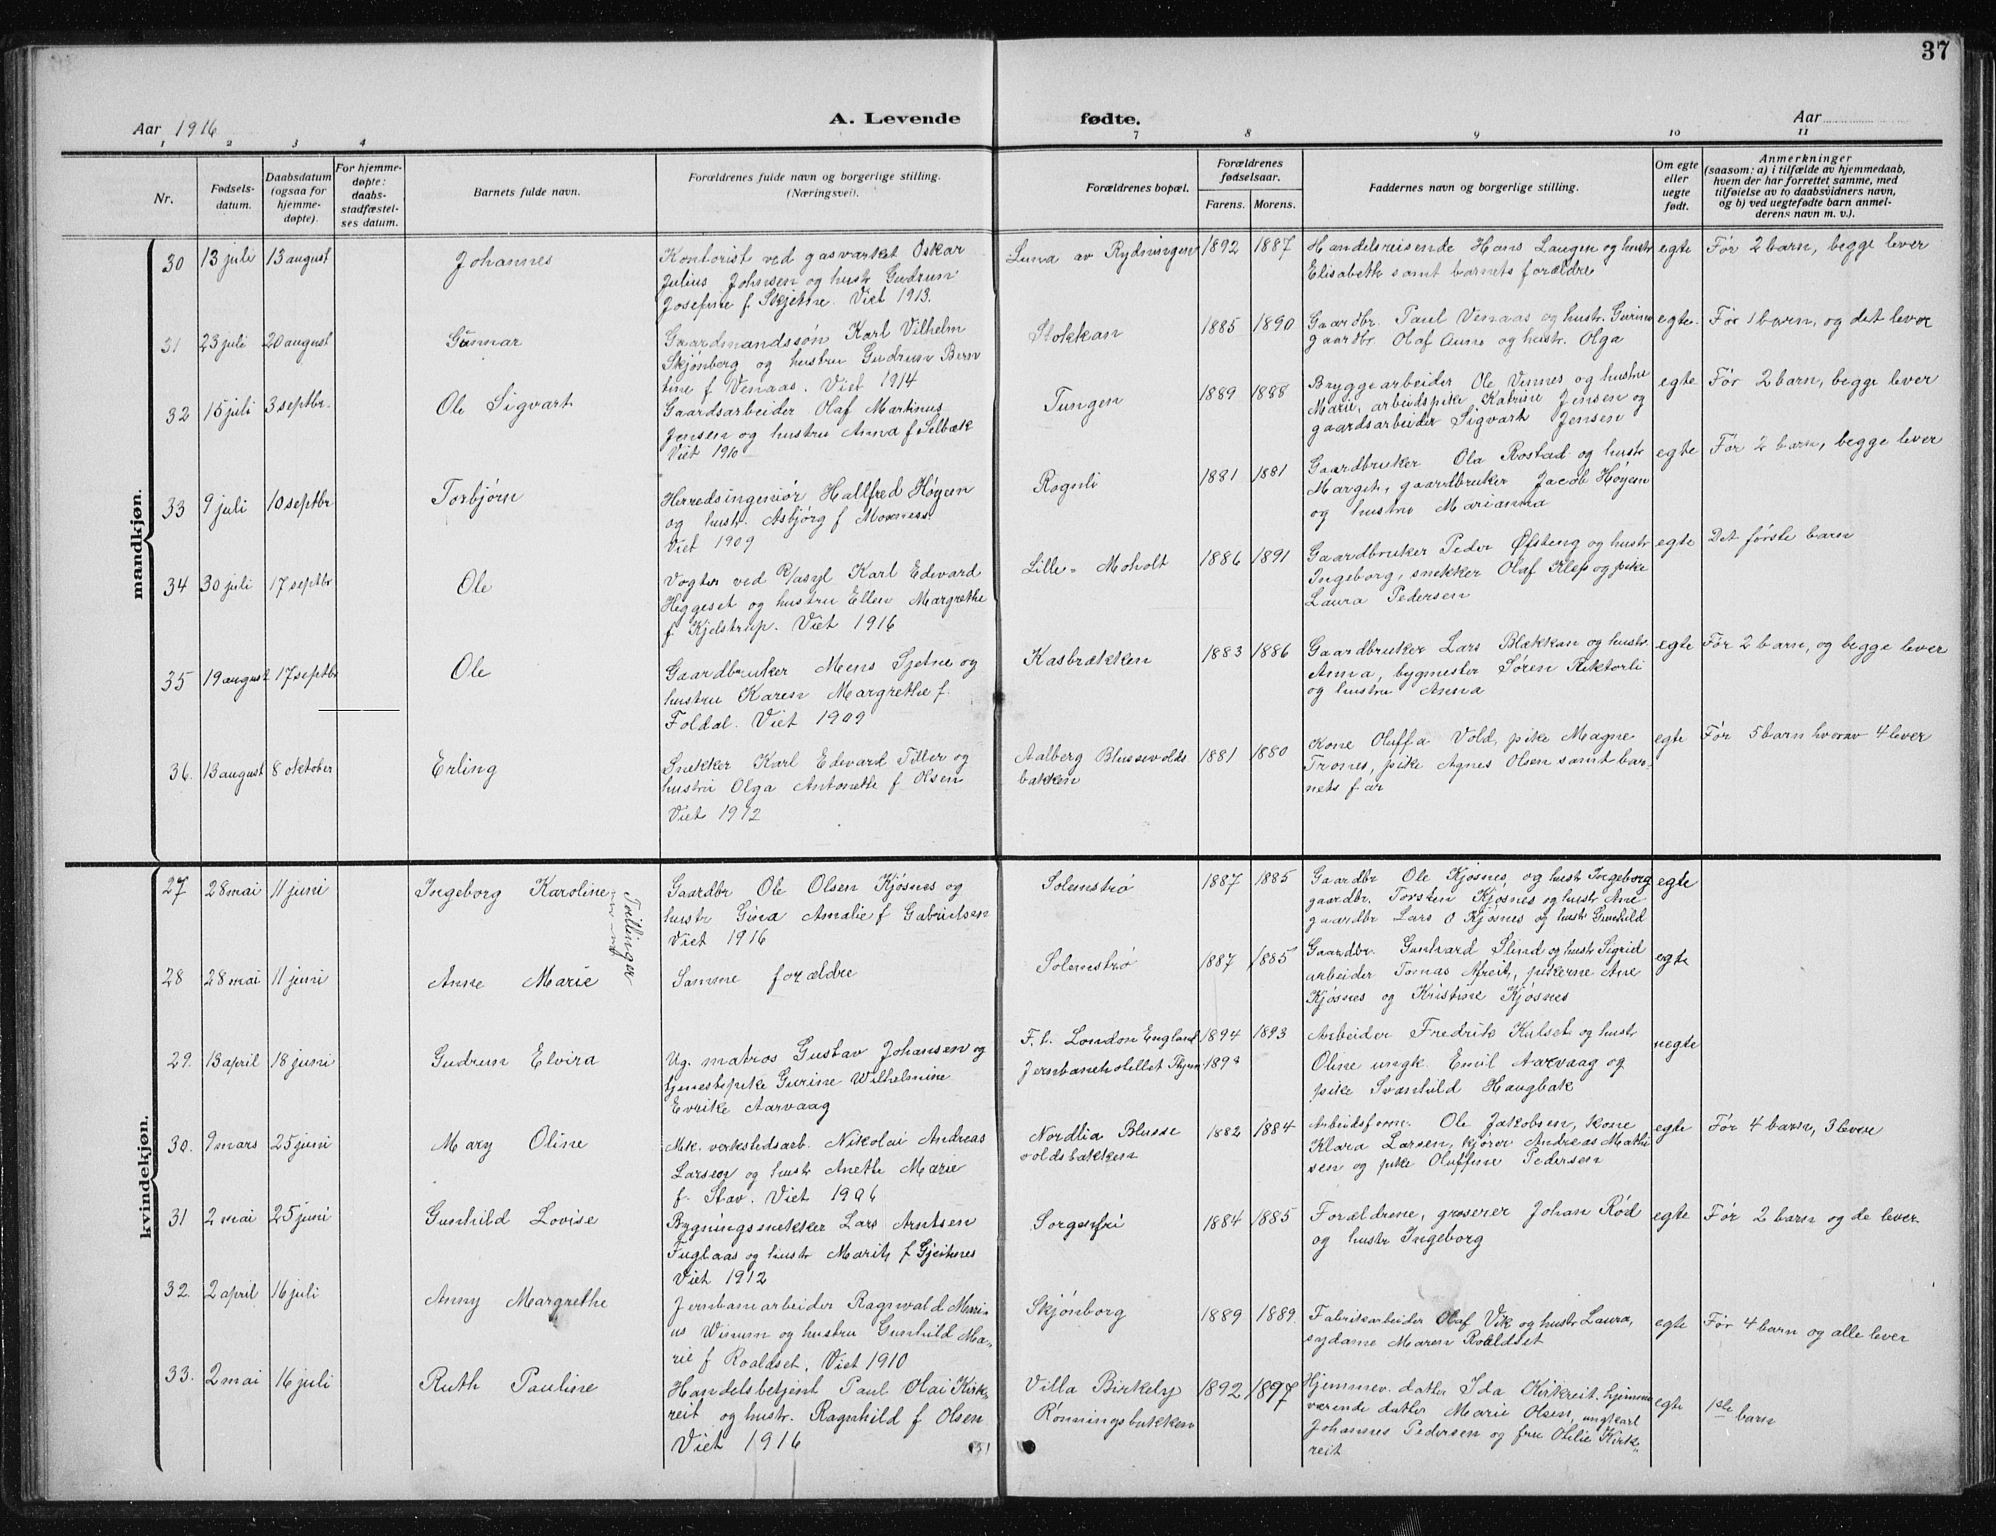 37
Aar 1916
A. Levende fødte.
Aar
1 2 3 4 7 8 9 10 11
Nr.
Fødsels-
datum.
Daabsdatum
(ogsaa for
hjemme-
døpte).
For hjemme-
døpte:
daabs-
stadfæstel-
ses datum.
Barnets fulde navn.
Forældrenes fulde navn og borgerlige stilling.
(Næringsvei).
Forældrenes bopæl.
Forældrenes
fødselsaar.
Farens. Morens.
Faddernes navn og borgerlige stilling.
Om egte
eller
uegte
født.
Anmerkninger
(saasom: a) i tilfælde av hjemmedaab,
hvem der har forrettet samme, med
tilføielse av to daabsvidners navn,
og b) ved uegtefødte barn anmel-
derens navn m. v.).
mandkjøn.
30 13 juli 13 august Johannes
Kontorist ved gasværket Oskar
Julius Johnsen og hustr Gudrun
Josefine f. Skjetne. Viet 1913.
Luna av Rydningen 1892 1887
Handelsreisende Hans Langen og hustr
Elisabeth samt barnets forældre
egte Før 2 barn, begge lever
31 23 juli 20 august Gunnar
Gaardmandssøn Karl Vilhelm
Skjønberg og hustru Gudrun Bern
tine f Venaas. Viet 1914
Stokkan 1885 1890
Gaardbr. Paul Venaas og hustr. Gurine
gaardbr. Olaf Aune og hustr. Olga
egte. Før 1 barn, og det lever
32 15 juli 3 septbr. Ole Sigvart
Gaardsarbeider Olaf Martinus
Jensen og hustru Anna f Selbæk
Viet 1910
Tungen 1889 1888
Bryggearbeider Ole Vennes og hustru
Marie, arbeidspike Katrine Jensen og
gaardsarbeider Sigvart Jensen
egte Før 2 barn, begge lever
33 9 juli 10 septbr Torbjørn
Herredsingeniør Hallfred Høyem
og hustr. Asbjørg f Moxness.
Viet 1909
Rognli 1881 1881
Gaardbruker Ola Rostad og hustr
Margit, gaardbruker Jacob Høyem
og hustru Marianna
egte Før 2 barn, begge lever
34 30 juli 17 septbr Ole
Vogter ved R/asyl Karl Edvard
Heggeset og hustru Ellen Margrethe
f. Kjelstrup. Viet 1916
Lille-Moholt 1886 1891
Gaardbruker Peder Øfsteng og hustr
Ingeborg, snekker Olaf Klep og pike
Laura Pedersen
egte Det første barn
35 19 august 17 septbr Ole
Gaardbruker Mens Sjetne og
hustru Karen Margrethe f.
Foldal. Viet 1909
Kasbrækken 1883 1886
Gaardbruker Lars Blækkan og hustr
Anna, bygmester Søren Rektorli
og hustru Anna
egte Før 2 barn, og begge lever
36. 13 august 8 oktober Erling
Snekker Karl Edvard Tiller og
hustru Olga Antonette f Olsen
Viet 1912
Aalberg Blussevolds
bakken 1881 1880
Kone Oluffa Vold, pike Magne
Trones, pike Agnes Olsen samt bar-
nets far
egte Før 5 barn hvorav 4 lever
kvindekjøn.
27 28 mai 11 juni Ingeborg Karoline
Tvillinger
Gaardbr Ole Olsen Kjøsnes og
hustr Gina Amalie f Gabrielsen
Viet 1916
Solemstrø 1887 1885
Gaardbr Ole Kjøsnes, og hustr Ingeborg
gaardbr. Torsten Kjøsnes og hustr Ane
gaardbr Lars O Kjøsnes og hustr Gunhild
egte
28 28 mai 11 juni Anne Marie
Samme forældre
Solemstrø 1887 1885
Gaardbr. Gunhard Slind og hustr Sigrid
arbeider Tomas Afreit, pikerne Ane
Kjøsnes og Kristine Kjøsnes
egte
29. 13 april 18 juni Gudrun Elvira
Ug. matros Gustav Johansen og
tjenestepike Gurine Wilhelmine
Evrike Aarvaag
F. t. London England 1894 1893
Jernbanehotellet Thjem 1893
Arbeider Fredrik Kulset og hustr
Oline ungk. Emil Aarvaag og
pike Svanhild Haugbak
uegte
30. 9 mars 25 juni Mary Oline
Mek. verkstedsarb. Nikolai Andreas
Larsen og hustr Anette Marie
f. Stav. Viet 1906
Nordlia Blusse
voldsbakken 1882 1884
Arbeidsform. Ole Jakobsen, kone
Klara Larsen, kjører Andreas Mathi
sen og pike Oluffine Pedersen
egte Før 4 barn, 3 lever
31 2 mai 25 juni Gunhild Lovise
Bygningssnekker Lars Arntsen
Fuglaas og hustr Marit f Gjeitnes
Viet 1912
Sorgenfri 1884 1885
Forældrene, grosserer Johan Rød
og hustr Ingeborg
egte Før 2 barn og de lever
32. 2 april 16 juli Anny Margrethe
Jernbanearbeider Ragnvald Mari-
us Winum og hustru Gunhild Ma-
rie f Roaldset. Viet 1910
Skjønborg 1889 1889.
Fabrikarbeider Olaf Vik og hustr Laura,
sydame Maren Roaldset
egte Før 4 barn og alle lever
33. 2 mai 16 juli Ruth Pauline
Handelsbetjent Paul Olai Kirk-
reit og hustr. Ragnhild f Olsen
Viet 1916
Villa Birkely
Rønningsbakken 1892 1897
Hjemmev. datter Ida Kirkreit, hjemme
værende datter Marie Olsen, ungkarl
Johannes Pedersen og fru Otilie Kirk-
reit
egte 1ste barn